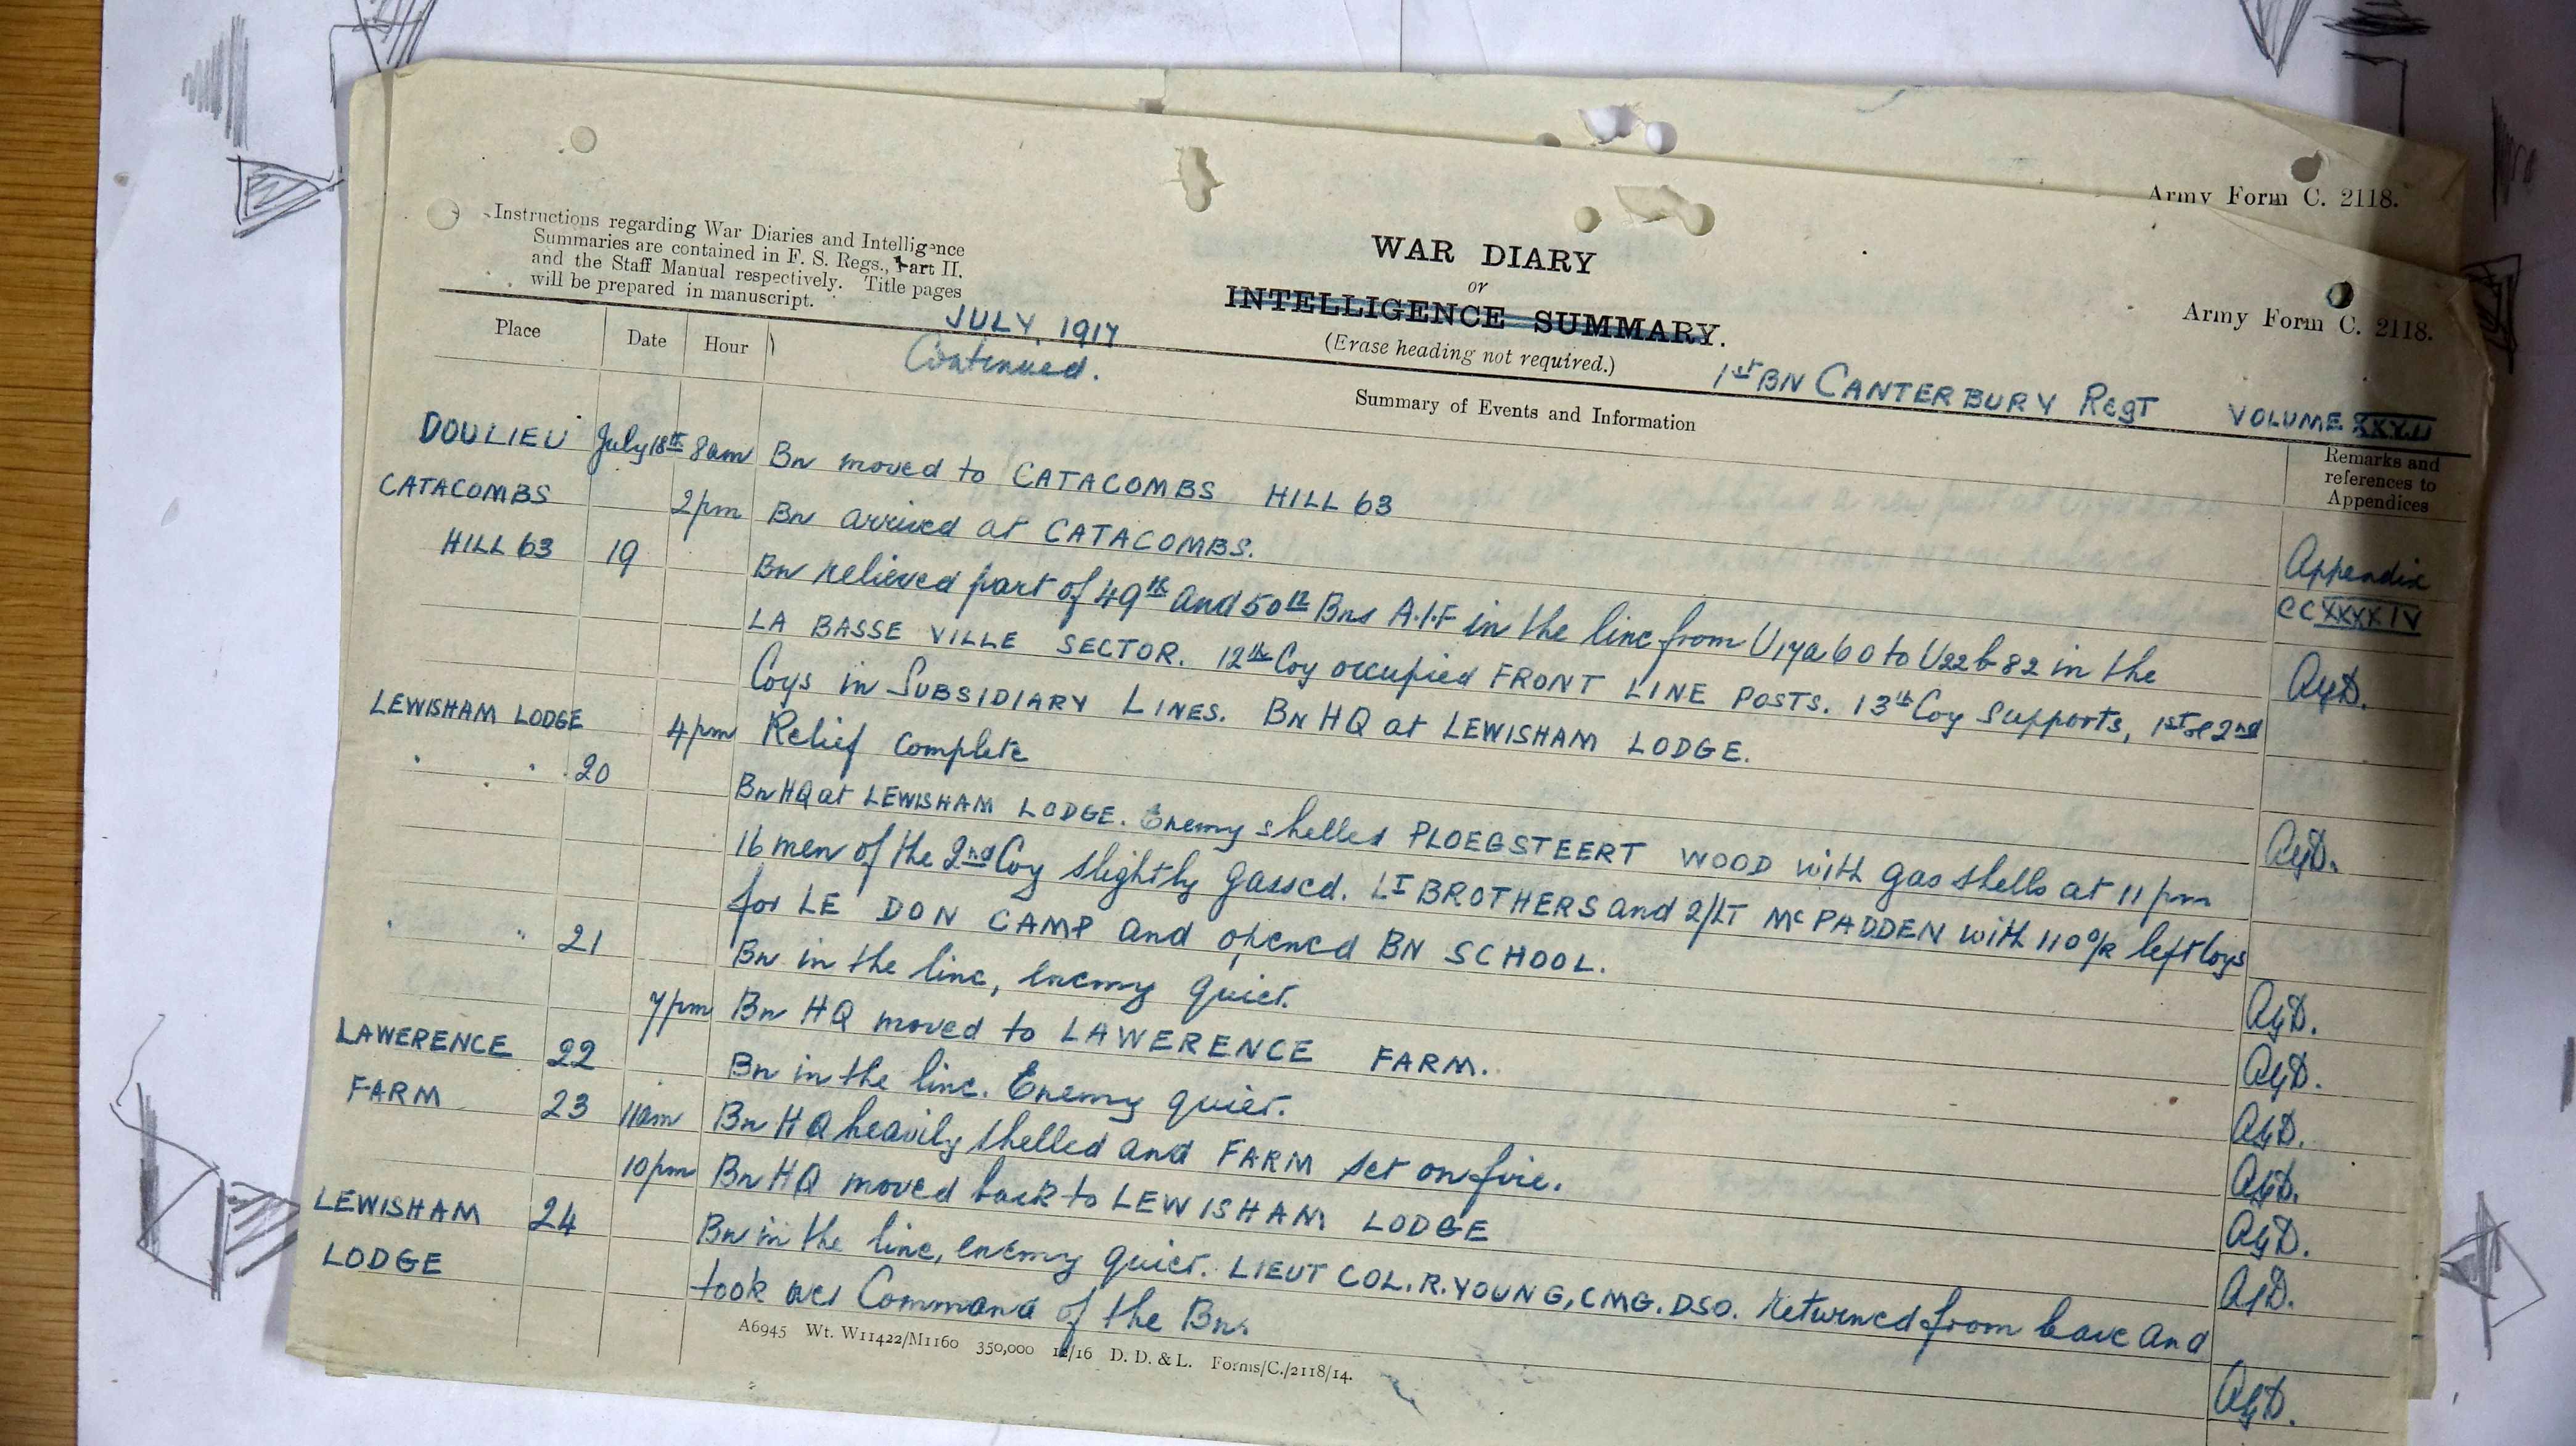 Army Form C. 2118.
Instructions regarding War Diaries and Intelligence
Summaries are contained in F. S. Regs., Part II.
and the Staff Manual respectively. Title pages
will be prepared in manuscript.
WAR DIARY
or
INTELLIGENCE SUMMARY.
(Erase heading not required.)
Army Form C. 2118.
JULY 1917
Continued.
1st BN CANTERBURY RegT VOLUME
Place Date Hour Summary of Events and Information Remarks and
references to
Appendices
DOULIEU July 18th 8am Bn moved to CATACOMBS HILL 63
CATACOMBS 2pm Bn arrived at CATACOMBS. Appendix
HILL 63 19 Bn relieved part of 49th and 50th Bns A.I.F in the line from U17a60 to U22b82 in the CCXXXXIV
LA BASSE VILLE SECTOR. 12th Coy occupied FRONT LINE POSTS. 13th Coy Supports, 1st & 2nd AgD.
Coys in SUBSIDIARY LINES. BN HQ at LEWISHAM LODGE.
LEWISHAM LODGE 4pm Relief complete
" " 20 Bn HQ at LEWISHAM LODGE. Enemy shelled PLOEGSTEERT WOOD with gas shells at 11pm AgD.
16 men of the 2nd Coy slightly gassed. LT BROTHERS and 2/LT McPADDEN with 110 O/R left Coys
for LE DON CAMP and opened BN SCHOOL.
" " 21 Bn in the line, enemy quiet. AgD.
7pm Bn HQ moved to LAWERENCE FARM. AgD.
LAWERENCE 22 Bn in the line. Enemy quiet. AgD.
FARM 23 11am Bn HQ heavily shelled and FARM set on fire. AgD.
10pm Bn HQ moved back to LEWISHAM LODGE AgD.
LEWISHAM 24 Bn in the line, enemy quiet. LIEUT COL. R. YOUNG, CMG. DSO. returned from leave and AgD.
LODGE took over Command of the Bn. AgD.
A6945 Wt. W11422/M1160 350,000 12/16 D. D. & L. Forms/C./2118/14.